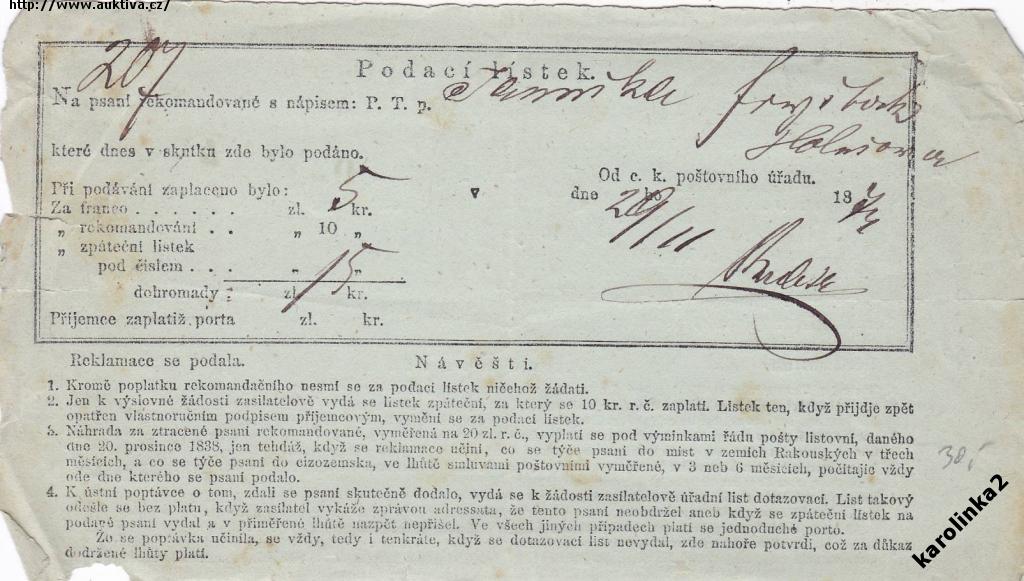 http://www.auktiva.cz/
207
Podací lístek.
Na psaní rekomandované s nápisem: P. T. p.
které dnes v skutku zde bylo podáno.
Při podávání zaplaceno bylo:
Od c. k. poštovního úřadu.
Za franco . . . . . . zl. 5 kr.
dne 29/11 ho 18
„ rekomandování . . „ 10 „
„ zpáteční lístek
pod číslem . . . „ „
dohromady: zl. 15 kr.
Příjemce zaplatiž porta zl. kr.
Reklamace se podala.
Návěští.
1. Kromě poplatku rekomandačního nesmí se za podací lístek ničehož žádati.
2. Jen k výslovné žádosti zasílatelově vydá se lístek zpáteční, za který se 10 kr. r. č. zaplatí. Lístek ten, když přijdje zpět
opatřen vlastnoručním podpisem příjemcovým, vymění se za podací lístek.
3. Náhrada za ztracené psaní rekomandované, vyměřená na 20 zl. r. č., vyplatí se pod výminkami řádu pošty listovní, daného
dne 20. prosince 1838, jen tehdáž, když se reklamace učiní, co se týče psaní do míst v zemích Rakouských v třech
měsících, a co se týče psaní do cizozemska, ve lhůtě smluvami poštovními vyměřené, v 3 neb 6 měsících, počítajíc vždy
ode dne kterého se psaní podalo.
4. K ústní poptávce o tom, zdali se psaní skutečně dodalo, vydá se k žádosti zasílatelově úřadní list dotazovací. List takový
odešle se bez platu, když zasílatel vykáže zprávou adressata, že tento psaní neobdržel aneb když se zpáteční lístek na
podané psaní vydal a v přiměřené lhůtě nazpět nepřišel. Ve všech jiných případech platí se jednoduché porto.
Že se poptávka učinila, se vždy, tedy i tenkráte, když se dotazovací list nevydal, zde nahoře potvrdí, což za důkaz
dodržené lhůty platí.
karolinka2